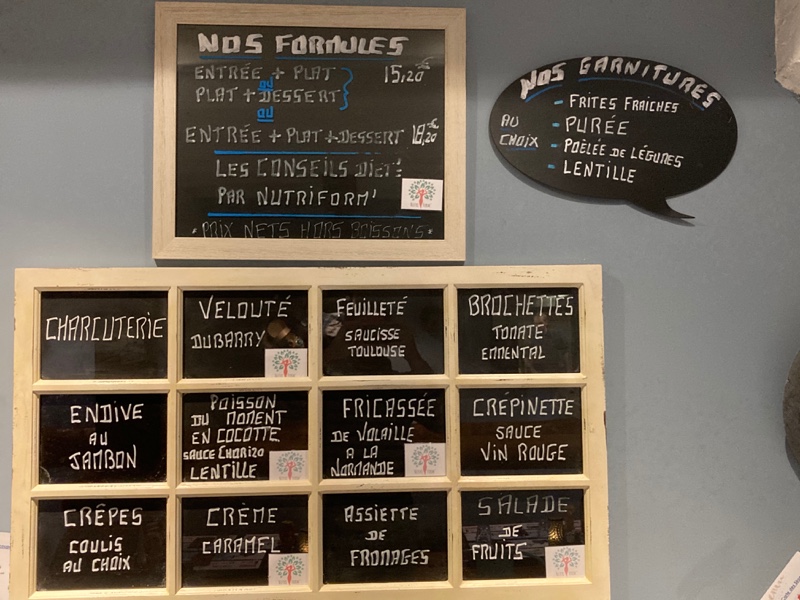 NOS FORMULES
ENTRÉE + PLAT 15,20€
ou
PLAT + DESSERT
ou
ENTRÉE + PLAT + DESSERT 18,20€
LES CONSEILS DIET!
PAR NUTRIFORM'
* PRIX NETS HORS BOISSONS *
NOS GARNITURES
AU
CHOIX
- FRITES FRAICHES
- PURÉE
- POÊLÉE DE LÉGUMES
- LENTILLE
CHARCUTERIE
VELOUTÉ
DUBARRY
FEUILLETÉ
SAUCISSE
TOULOUSE
BROCHETTES
TOMATE
EMMENTAL
ENDIVE
AU
JAMBON
POISSON
DU MOMENT
EN COCOTTE
SAUCE CHORIZO
LENTILLE
FRICASSÉE
DE VOLAILLE
A LA
NORMANDE
CRÉPINETTE
SAUCE
VIN ROUGE
CRÊPES
COULIS
AU CHOIX
CRÈME
CARAMEL
ASSIETTE
DE
FROMAGES
SALADE
DE
FRUITS